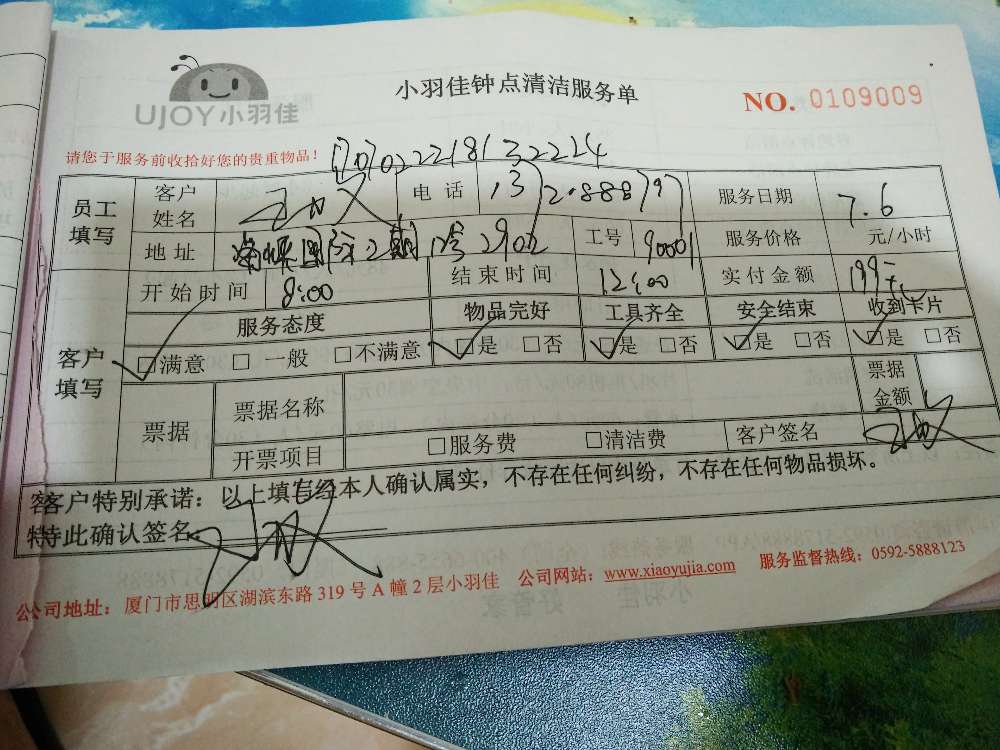 UJOY小羽佳
小羽佳钟点清洁服务单
NO. 0109009
请您于服务前收拾好您的贵重物品！
员工填写 客户姓名 电话 服务日期 7.6
地址 2902 工号 90001 服务价格 元/小时
开始时间 8:00 结束时间 12:00 实付金额 199元
客户填写 服务态度 物品完好 工具齐全 安全结束 收到卡片
□满意 □ 一般 □不满意 □是 □否 □是 □否 □是 □否 □是 □否
票据 票据名称 票据金额
开票项目 □服务费 □清洁费 客户签名
客客户特别承诺：以上填写经本人确认属实，不存在任何纠纷，不存在任何物品损坏。
特此确认签名
公司地址：厦门市思明区湖滨东路 319 号 A 幢 2 层小羽佳 公司网站：www.xiaoyujia.com 服务监督热线：0592-5888123